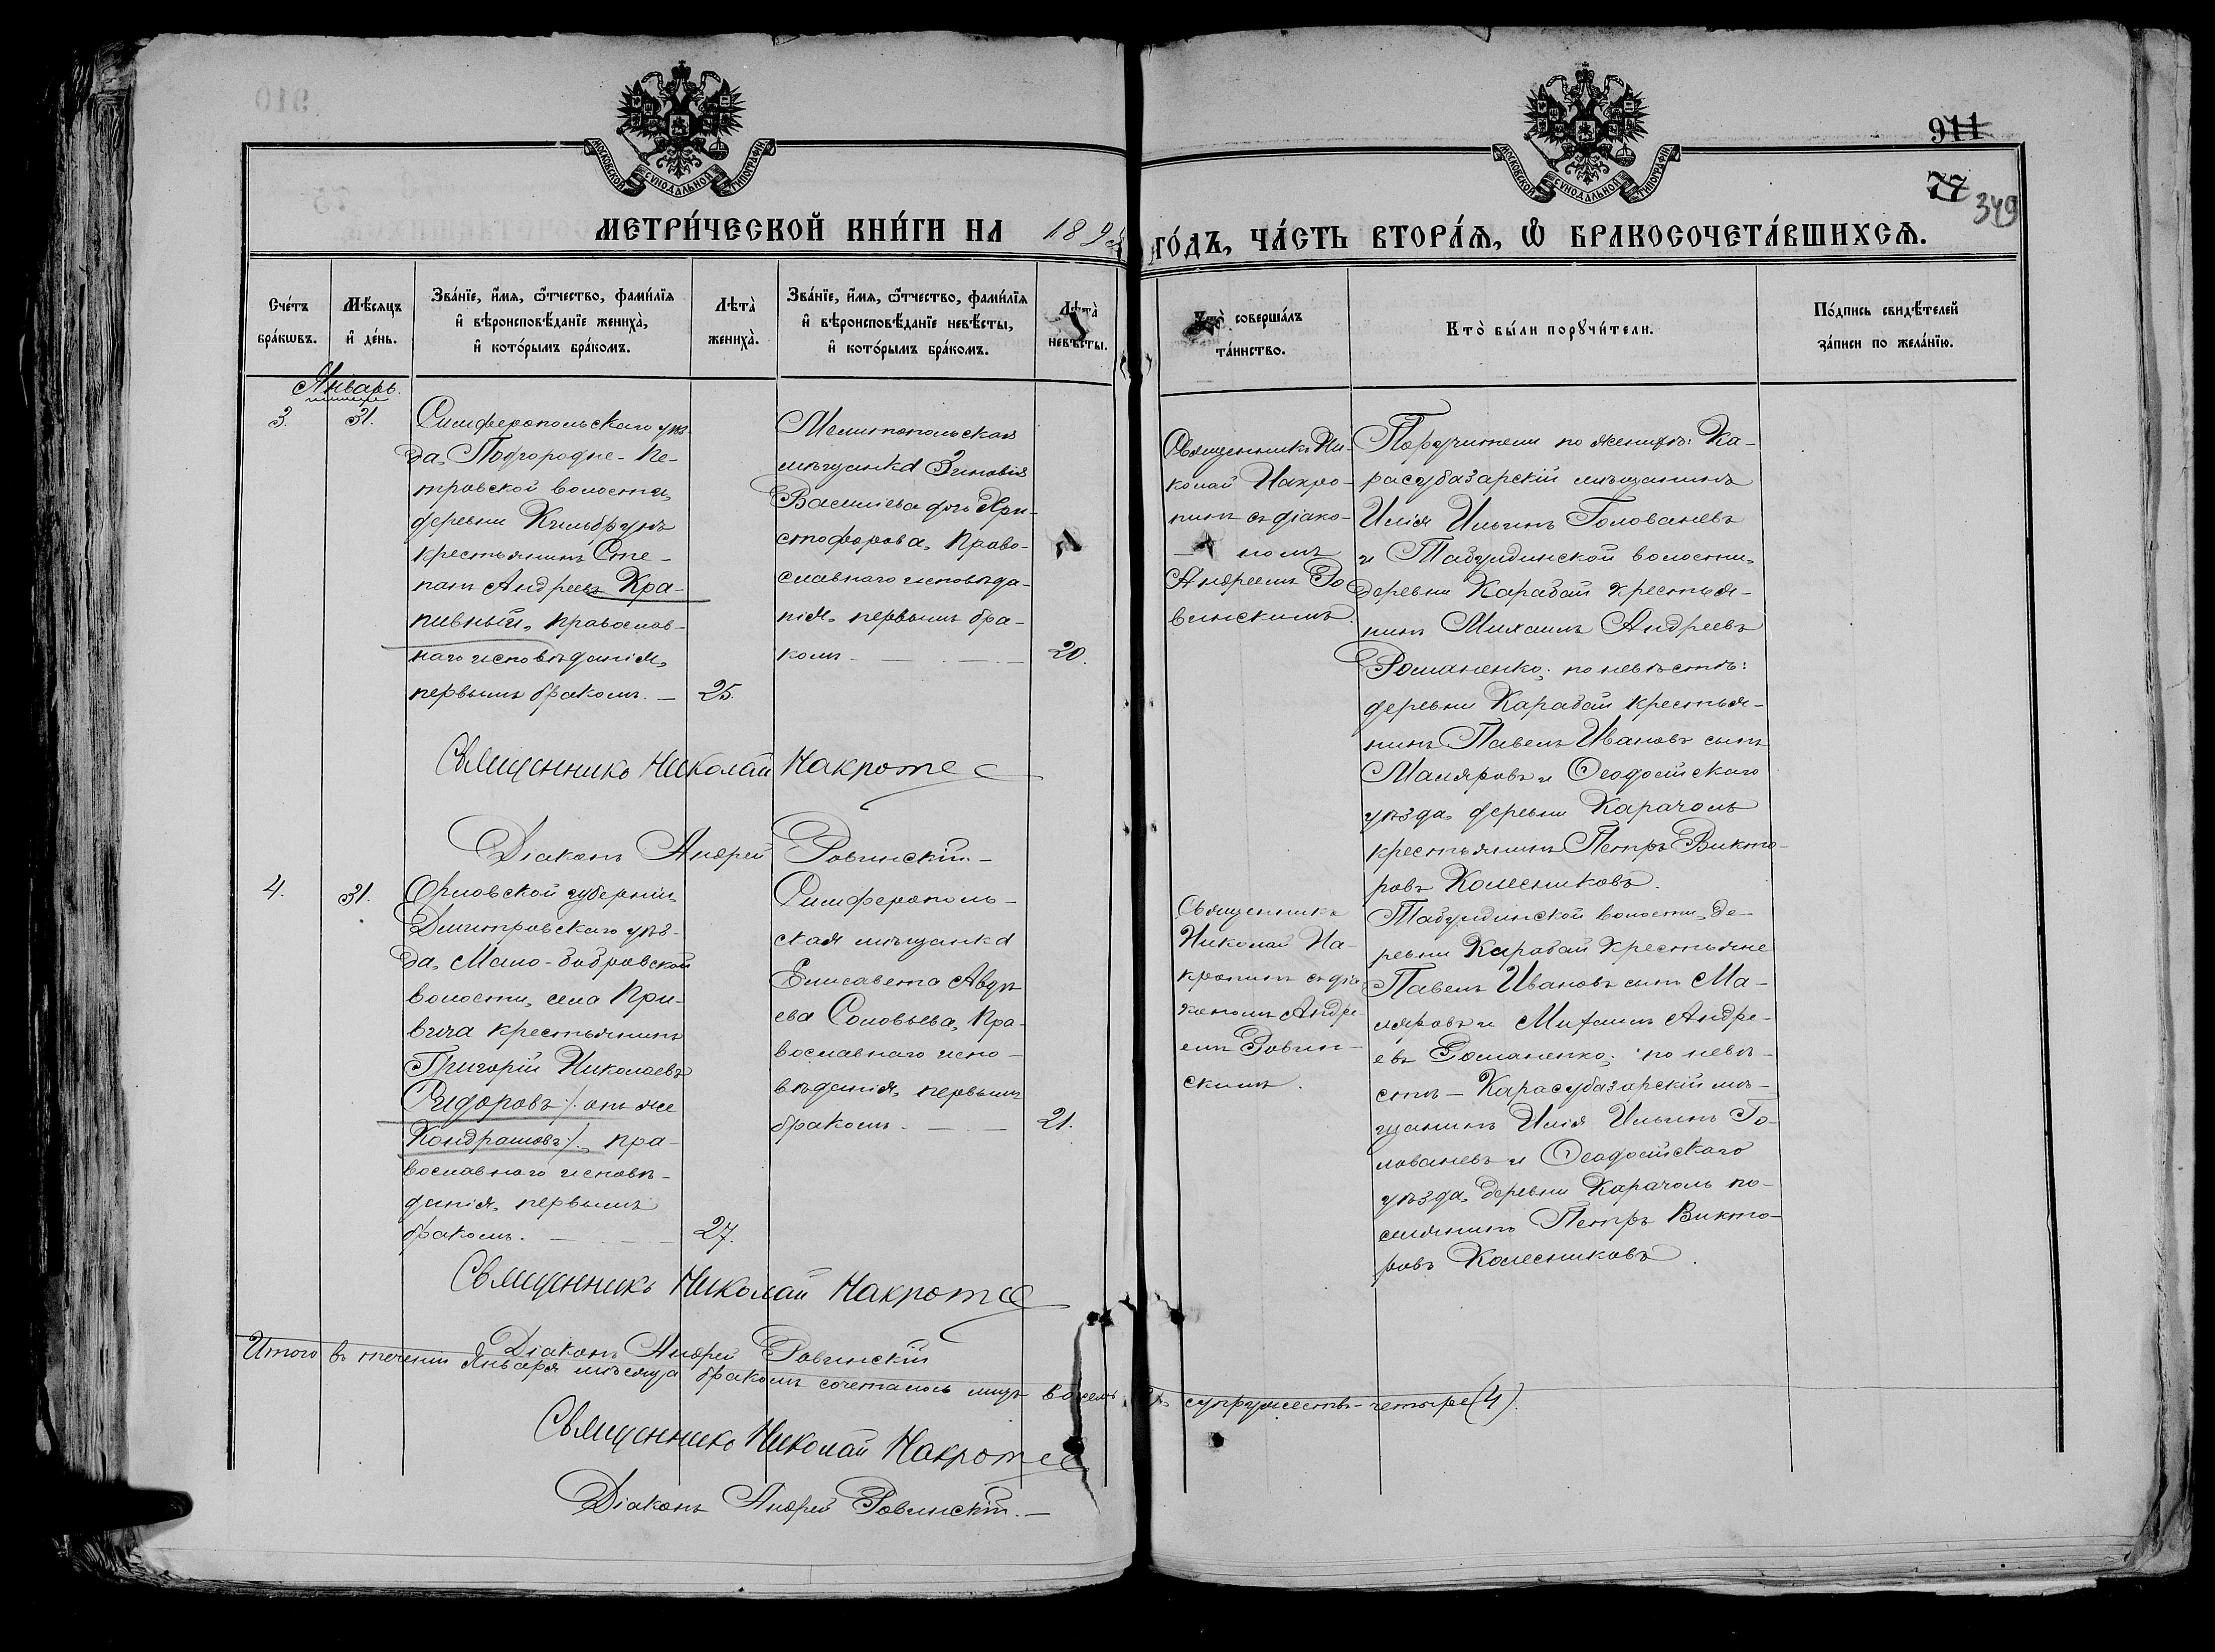 911
77
349
МОСКОВСКОЙ СѴНОДАЛЬНОЙ ТИПОГРАФІИ
МОСКОВСКОЙ СѴНОДАЛЬНОЙ ТИПОГРАФІИ
МЕТРИ́ЧЕСКОЙ КНИ́ГИ НА 189
ГО́ДЪ, ЧА́СТЬ ВТОРА́Ѧ, Ѡ҆ БРАКОСОЧЕТА́ВШИХСѦ.
Сче́тъ бра́кѡвъ.
Мѣ́сяцъ и҆ де́нь.
Зва́нїе, и҆́мѧ, ѻ҆́тчество, фами́лїѧ
и҆ вѣроисповѣ́данїе жениха̀,
и҆ кото́рымъ бра́комъ.
Лѣта̀ жениха̀.
Зва́нїе, и҆́мѧ, ѻ҆́тчество, фами́лїѧ
и҆ вѣроисповѣ́данїе невѣ́сты,
и҆ кото́рымъ бра́комъ.
Лѣта̀ невѣ́сты.
Кто̀ соверша́лъ
та́инство.
Кто̀ бы́ли порꙋчи́тели.
По́дпись свидѣ́телей
за́писи по жела́нїю.
Январь.
3.
31.
Симферопольскаго уѣз-
да, Подгородне-Пе-
тровской волости,
деревни Кильбурунъ
крестьянинъ Сте-
панъ Андреевъ Кра-
пивный, православ-
наго исповѣданія,
первымъ бракомъ. —
25.
Мелитопольская
мѣщанка Зиновія
Васильева дочь Хри-
стофорова, право-
славнаго исповѣда-
нія, первымъ бра-
комъ
20.
Священникъ Ни-
колай Накро-
пинъ съ діако-
номъ
Андреемъ Ро
винскимъ.
Поручители по женихѣ: Ка-
расубазарскій мѣщанинъ
Илія Ильинъ Голованевъ
и Табулдинской волости,
деревни Карабай крестья-
нинъ Михаилъ Андреевъ
Романенко; по невѣстѣ:
деревни Карабай крестья-
нинъ Павелъ Ивановъ сынъ
Маляровъ и Ѳеодосійскаго
уѣзда, деревни Карачоль
крестьянинъ Петръ Викто-
ровъ Колесниковъ.
Священникъ Николай
Діаконъ Андрей Ровинскій —
4.
31.
Орловской губерніи,
Дмитровскаго уѣз-
да, Мало-бобровской
волости, села При-
вича крестьянинъ
Григорій Николаевъ
Сидоровъ /. онъ же
Кондрашовъ /., пра-
вославнаго исповѣ-
данія, первымъ
бракомъ.
27.
Симферополь-
ская мѣщанка
Елисавета Авдѣ
ева Соловьева, пра-
вославнаго испо-
вѣданія, первымъ
бракомъ.
21.
Священникъ
Николай На-
кропинъ съ діа
кономъ Андре-
емъ Ровин-
скимъ.
Табулдинской волости, де-
ревни Карабай крестьяне
Павелъ Ивановъ сынъ Ма-
ляровъ и Михаилъ Андре-
евъ Романенко; по невѣ-
стѣ — Карасубазарскій мѣ-
щанинъ Илія Ильинъ Го-
лованевъ и Ѳеодосійскаго
уѣзда, деревни Карачоль по-
селянинъ Петръ Викто-
ровъ Колесниковъ.
Священникъ Николай
Діаконъ Андрей Ровинскій
Итого въ теченіи Января мѣсяца бракомъ сочеталось лицъ восемь, супружествъ — четыре (4).
Священникъ Николай
Діаконъ Андрей Ровинскій. —